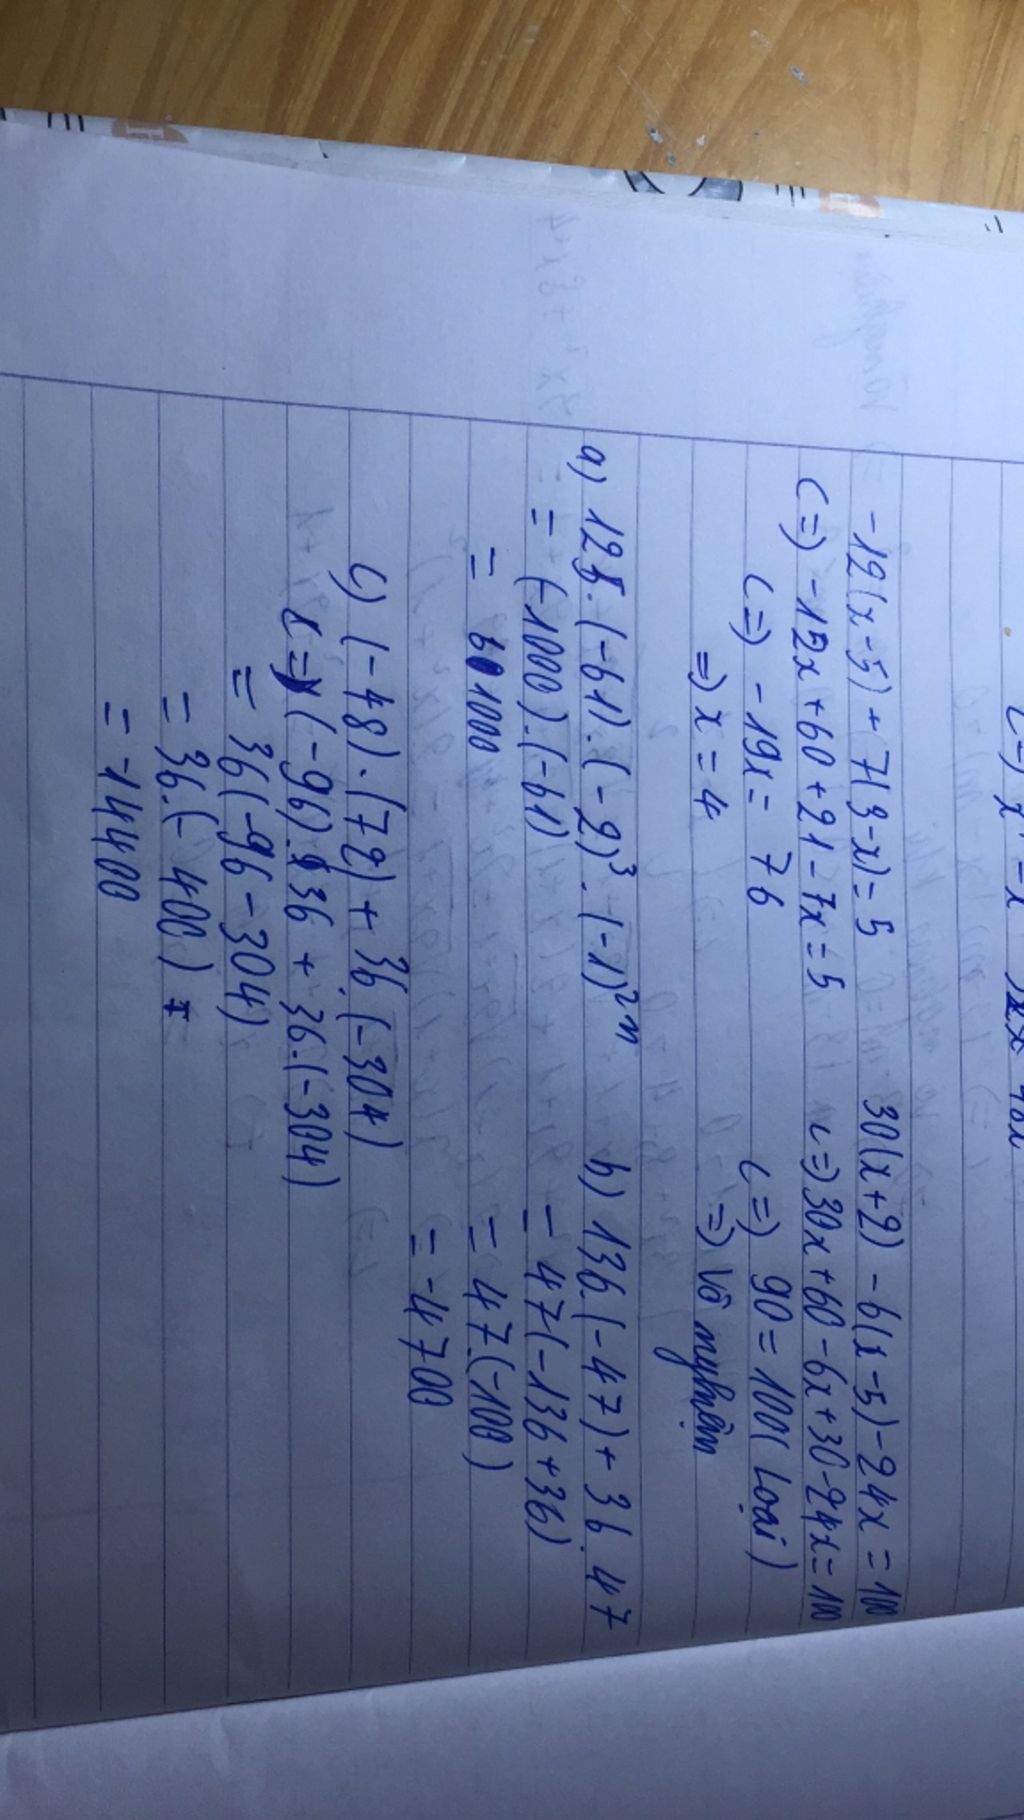 -12(x-5) + 7(3-x) = 5
(=) -12x + 60 + 21 - 7x = 5
(=) -19x = 76
=) x = 4
30(x+2) - 6(x-5) - 24x = 100
(=) 30x + 60 - 6x + 30 - 24x = 100
(=) 90 = 100 ( loại )
=) Vô nghiệm
a) 125.(-61).(-2)³.(-1)²ⁿ
= (-1000).(-61)
= 61000
b) 136.(-47) + 36.47
= 47(-136 + 36)
= 47.(-100)
= -4700
c) (-48).(72) + 36.(-304)
(=) (-96).36 + 36.(-304)
= 36(-96 - 304)
= 36.(-400)
= -14400